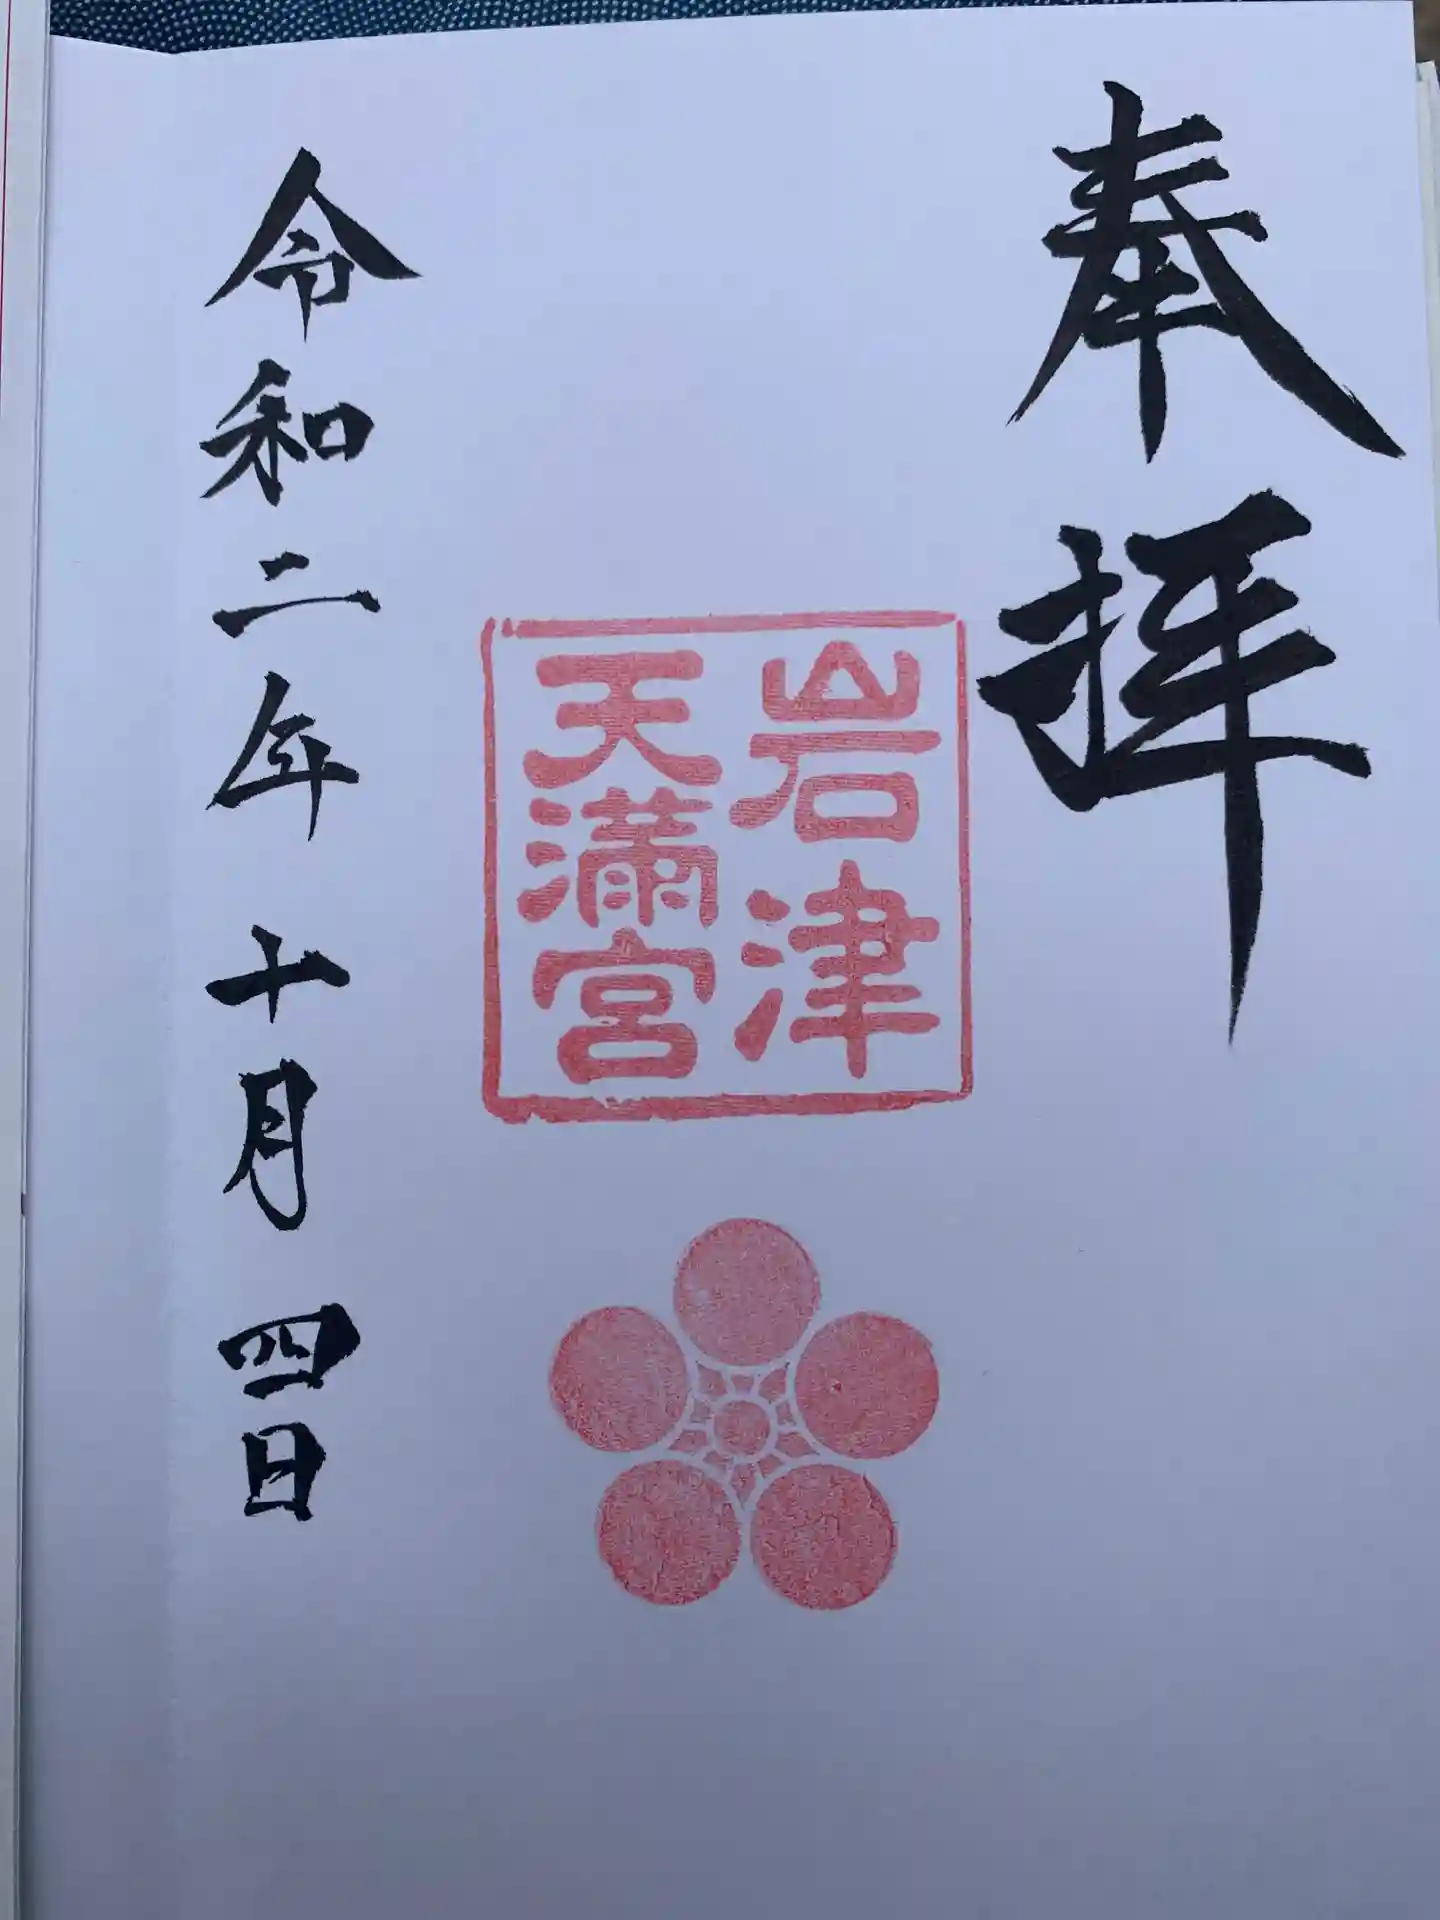 奉拝
岩津
天満宮
令和二年 十月 四日